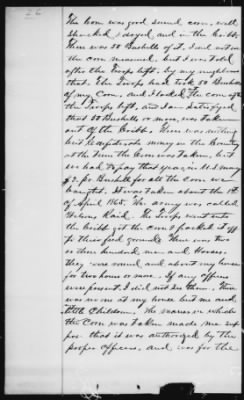 26
The Corn was good sound corn, well
shucked, dryed and in the Cribb.
There was 50 Bushells of it. I did not see
the corn measured, but I was told
after the Troops left, by my neighbors
that the Troops had took 50 Bushels
of my Corn, and I looked the corn after
the Troops left, and I am satisfyed
that 50 Bushells or more, was taken
out of the Cribb. There was nothing
but Confederate money in the Country
at the time the Corn was taken, but
we had to pay that year, in Ala. money
$2. pr Bushel for all the corn we
baught. It was taken about the 1st
of April 1865. The army was called
Wilsons Raid. The Troops went into
the Cribb got the corn & packed it off
to their feed grounds. There was two
or three hundred men and Horses.
they were round and about my house
for two hours or more. If any officers
were present, I did not see them. There
was no one at my house but me and
little Children. The manner in which
the Corn was taken made me sup
pose that it was authorized by the
proper officers, and was for the